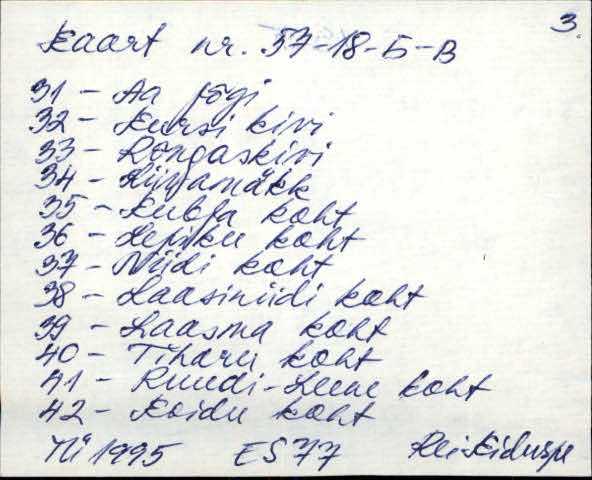 3.
Kaart nr. 57-18-Б-В
31 - Aa jõgi
32 - Kursi kivi
33 - Rongaskivi
34 - Liivamäkk
35 - Kubja koht
36 - Lepiku koht
37 - Niidi koht
38 - Laasiniidi koht
39 - Laasma koht
40 - Tiharu koht
41 - Ruudi-Leene koht
42 - Koidu koht
TÜ 1995 ES 77